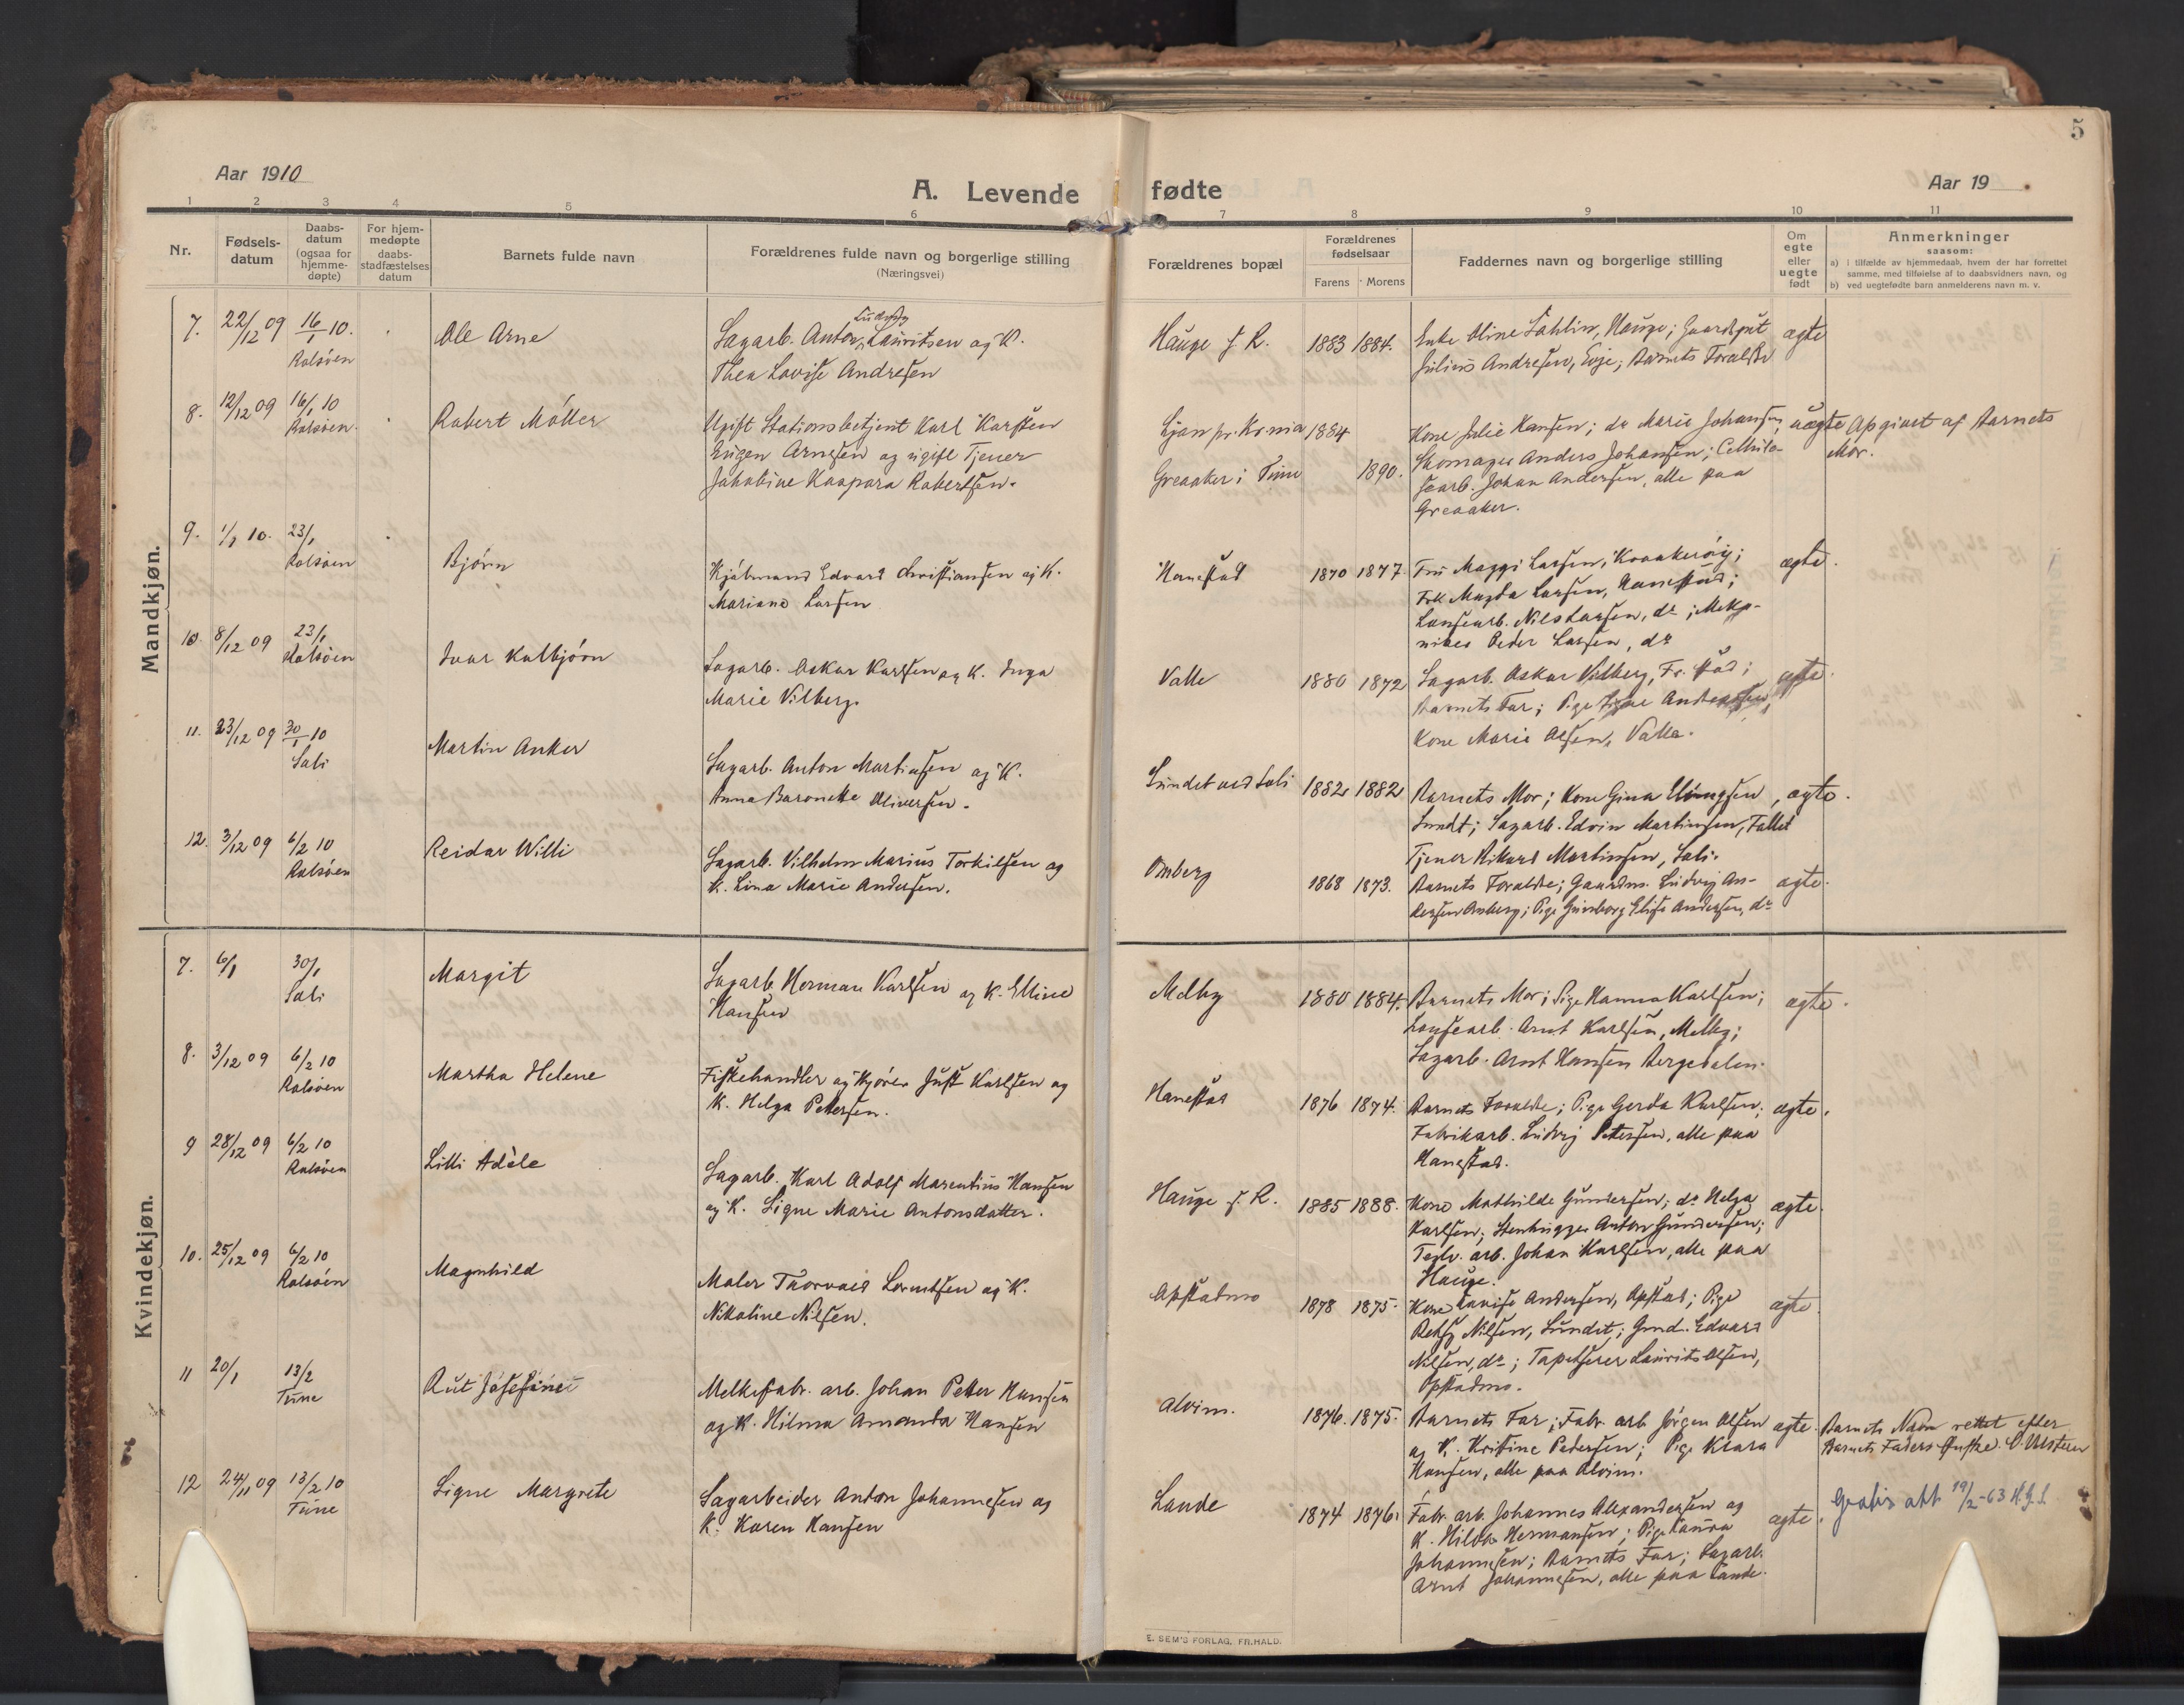 5
Aar 1910
A. Levende fødte
Aar 19
1 2 3 4 5 6 7 8 9 10 11
Nr.
Fødsels-
datum
Daabs-
datum
(ogsaa for
hjemme-
døpte)
For hjem-
medøpte
daabs-
stadfæstelses
datum
Barnets fulde navn
Forældrenes fulde navn og borgerlige stilling
(Næringsvei)
Forældrenes bopæl
Forældrenes
fødselsaar
Farens Morens
Faddernes navn og borgerlige stilling
Om
egte
eller
uegte
født
Anmerkninger
saasom:
a) i tilfælde av hjemmedaab, hvem der har forrettet
samme, med tilføielse af to daabsvidners navn, og
b) ved uegtefødte barn anmelderens navn m. v.
Mandkjøn.
7. 22/12 09 16/1 10.
Rolsöen
Ole Arne
Ludvig
Sagarb. Anton Lauritsen og K.
Thea Lovise Andresen
Hauge f. R. 1883 1884.
Enke Oline Sahlin, Hauge; Gaardsgut
Julius Andresen, Evje; Barnets Foraldre
ægte
8. 12/12 09 16/1 10
Rolsöen.
Robert Möller
Ugift Stationsbetjent Karl Karsten
Eugen Arnesen og ugift Tjener
Jakobine Kaspara Robertsen.
Ljan pr. Kr.nia 1884
Greaaker i Tune 1890.
Kone Julie Hansen; do Marie Johansen,
Skomager Anders Johansen; Cellulo-
searb. Johan Andersen, alle paa
Greaaker.
uægte
Opgivet af Barnets
Mor.
9. 1/1 10. 23/1
Rolsöen
Bjørn
Kjøbmand Edvard Christiansen og K.
Mariane Larsen
Hanestad 1870 1877.
Fru Maggi Larsen, Kraakeröy;
Frk Magda Larsen, Hanestad;
Lensearb. Nils Larsen, do;
Peder Larsen, do
ægte.
10. 8/12 09 23/1
Rolsöen
Ivar Kolbjörn
Sagarb. Oskar Karlsen og K. Inga
Marie Vilberg.
Valle 1880 1872
Sagarb. Oskar Vilberg, Fr. stad;
Barnets Far; Pige Signe Andersen,
Kone Marie Olsen, Valle.
ægte.
11. 23/12 09 30/1 10
Soli
Martin Anker
Sagarb. Anton Martinsen og K.
Anna Baronette Oliversen.
Lundet ved Soli 1882 1882
Barnets Mor; Kone Gina Elingsen,
Lundt; Sagarb. Edvin Martinsen, Fallet
Tjener Rikard Martinsen, Soli.
ægte.
12. 3/12 09 6/2 10
Rolsöen
Reidar Willi
Sagarb. Vilhelm Marius Torkilsen og
K. Lina Marie Andersen.
Omberg 1868 1873.
Barnets Foraldre; Gaardm. Ludvig An-
dersen Omberg; Pige Gunborg Elise Andersen, do
ægte.
Kvindekjøn.
7. 6/1 30/1
Soli
Margit
Sagarb. Herman Karlsen og K. Elline
Hansen
Melby 1880 1884.
Barnets Mor; Pige Hanna Karlsen;
Lensearb. Arnt Karlsen, Melby;
Sagarb. Arnt Hansen Bergedalen.
ægte.
8. 3/12 09 6/2 10
Rolsöen
Martha Helene
Fiskehandler og Kjører Just Karlsen og
K. Helga Pettersen.
Hanestad 1876 1874.
Barnets Foraldre; Pige Gerda Karlsen;
Fabrikarb. Ludvig Petersen, alle paa
Hanestad.
ægte.
9 28/12 09 6/2 10
Rolsöen
Lilli Adèle
Sagarb. Karl Adolf Marentius Hansen
og K. Signe Marie Antonsdatter.
Hauge f. R. 1885 1888.
Kone Mathilde Gundersen; do Helga
Karlsen; Stenhugger Anton Gundersen;
Teglv. arb. Johan Karlsen, alle paa
Hauge.
ægte.
10. 25/12 09 6/2 10
Rolsöen
Magnhild
Maler Thorvald Lorentsen og K.
Nikoline Nilsen.
Opstadmo 1878 1875.
Kone Lovise Andersen, Opstad; Pige
Betsy Nilsen, Lundet; Gmd. Edvard
Nilsen, do; Tapetserer Laurits Olsen,
Opstadmo.
ægte.
11 20/1 13/2
Tune
Rut Josefine
Melkefabr. arb. Johan Petter Hansen
og K. Hilma Amanda Hansen
Alvim. 1876. 1875.
Barnets Far; Fabr. arb. Jörgen Olsen
og K. Kristine Pedersen; Pige Klara
Hansen, alle paa Alvim.
ægte.
Barnets Navn rettet efter
Barnets Faders Ønske.
12 24/11 09 13/2 10
Tune
Signe Margrete
Sagarbeider Anton Johannesen og
K. Karen Hansen
Lande 1874 1876.
Fabr. arb. Johannes Alexandersen og
K. Hilda Hermansen; Pige Laura
Johannesen; Barnets Far; Sagarb.
Arnt Johannesen, alle paa Lande.
ægte.
Gratis att 19/2-63
E. SEM'S FORLAG, FR.HALD.